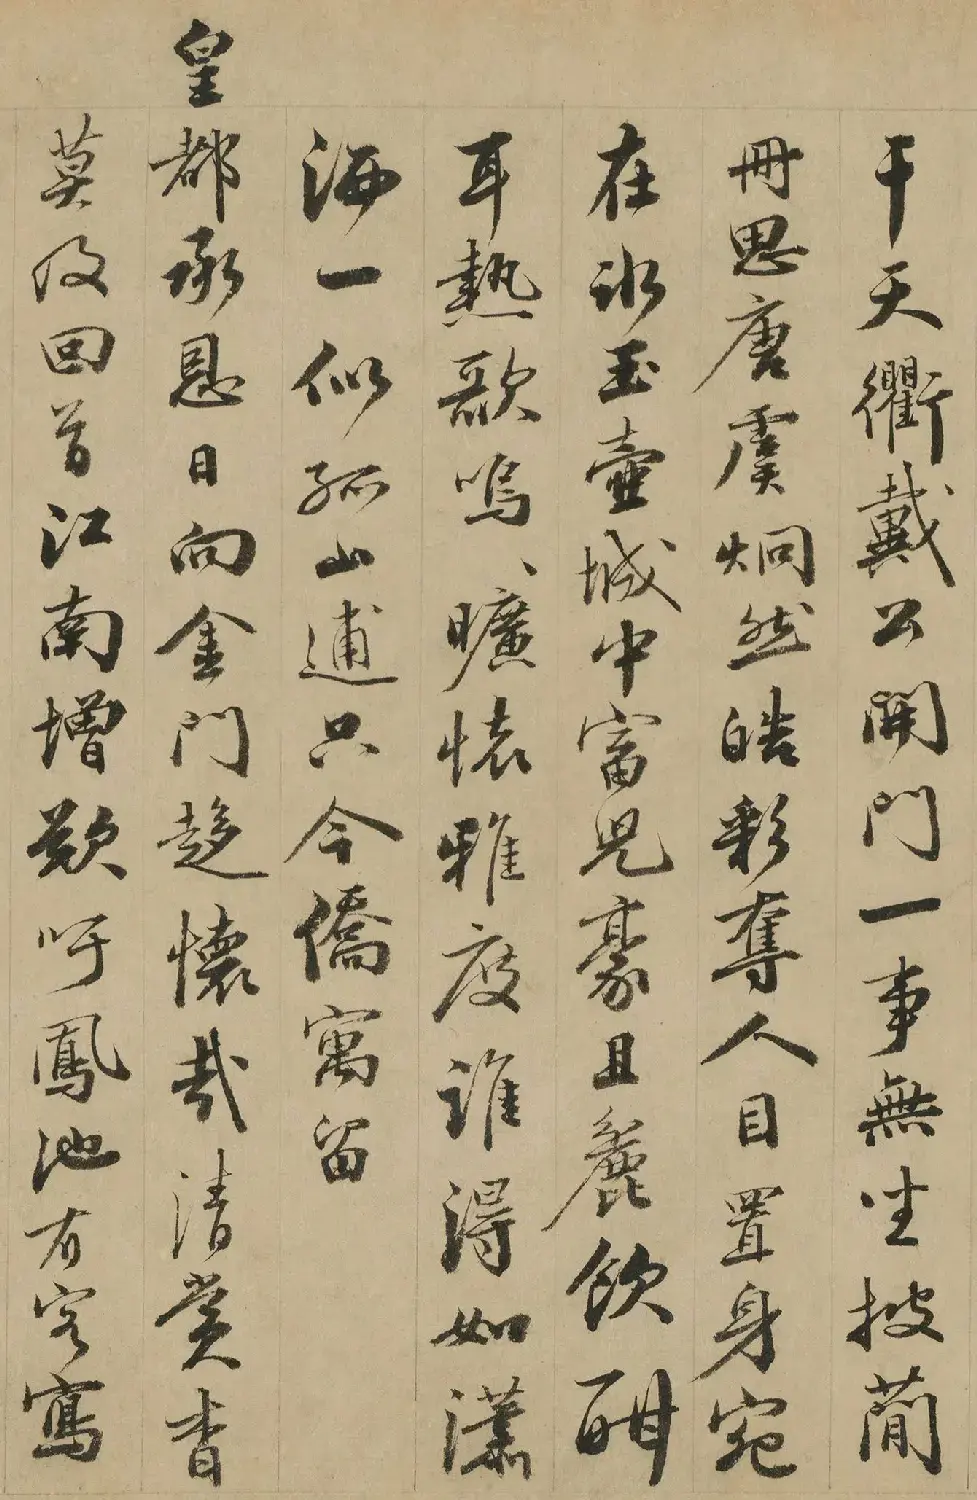 干天衢戴公開門一事無坐披蕳
冊思唐虞炯然皓彩奪人目置身宛
在冰玉壺城中富兒豪且麄飲酣
耳熱歌嗚〻曠懐雅度誰得如瀟
洒一似孤山逋只今僑寓留
皇都承恩日向金門趍懷哉清賞杳
莫及回首江南增歎吁鳳池有客寫